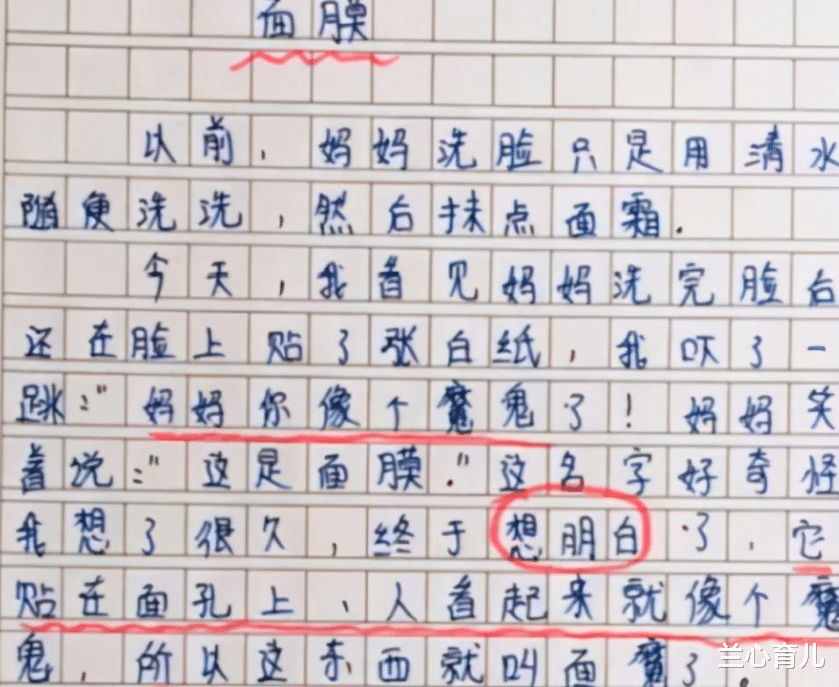 面膜
以前，妈妈洗脸只是用清水
随便洗洗，然后抹点面霜.
今天，我看见妈妈洗完脸后
还在脸上贴了张白纸，我吓了一
跳："妈妈你像个魔鬼了！妈妈笑
着说："这是面膜."这名字好奇怪
我想了很久，终于想明白了，它
贴在面孔上、人看起来就像个魔
鬼，所以这东西就叫面魔了.
兰心育儿